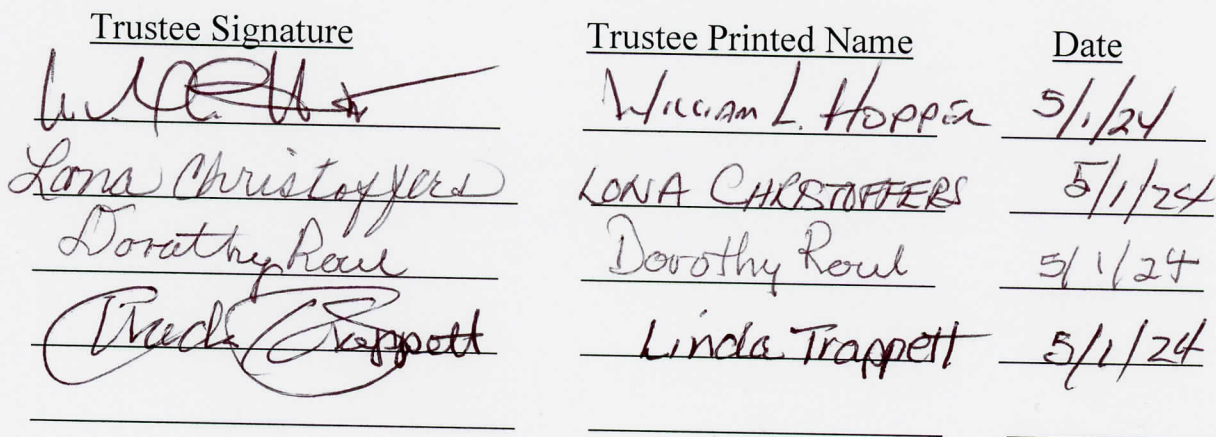 Trustee Signature Trustee Printed Name Date
William L. Hopper 5/1/24
Lona Christoffers LONA CHRSTOFFERS 5/1/24
Dorothy Roul Dorothy Roul 5/1/24
Trappett Linda Trappett 5/1/24